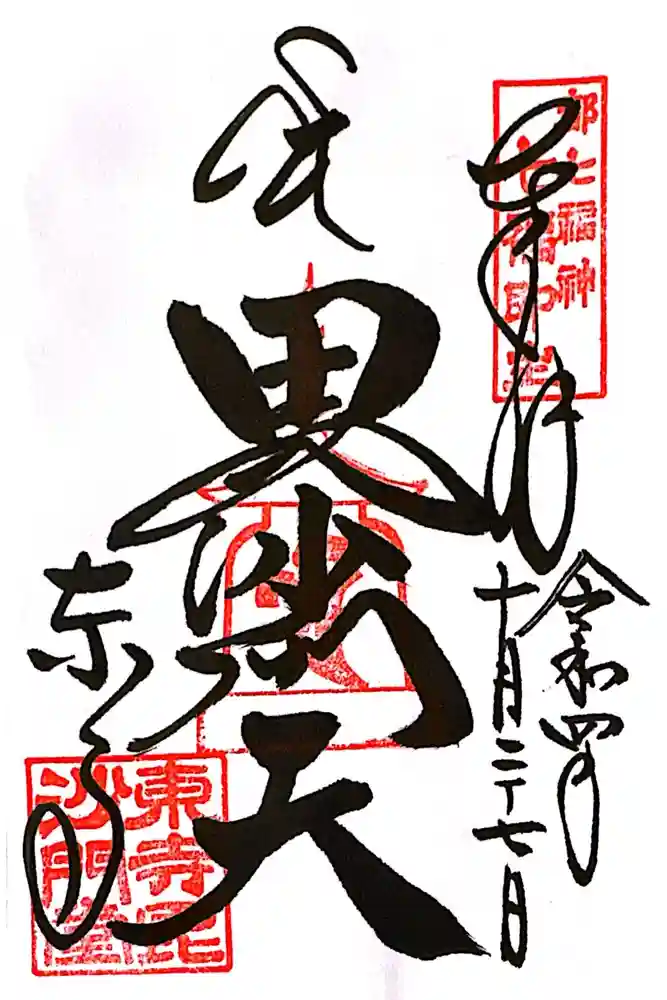 都七福神
奉拝
令和四年
十月二十七日
毘沙門天
東寺
東寺毘
沙門堂